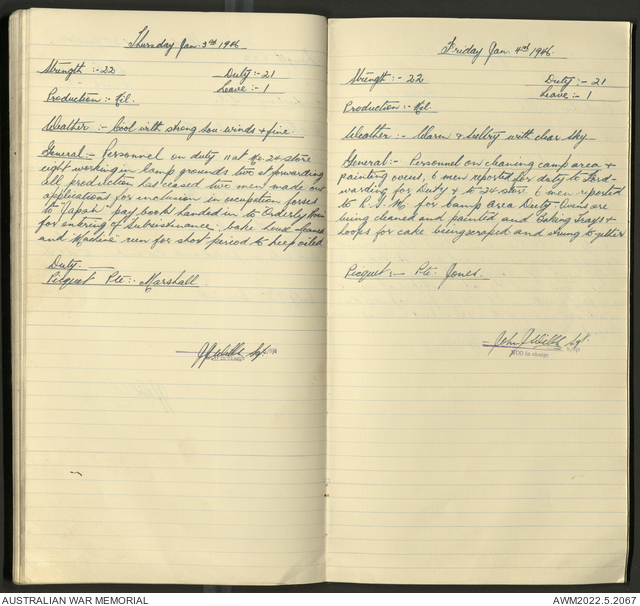 Thursday Jan. 3rd 1946
Strength :- 22 Duty :- 21
Leave :- 1
Production :- Nil.
Weather :- Cool with strong sou winds & fine.
General :- Personnel on duty 11 at No. 24 store
eight working in camp grounds two at forwarding
all production has ceased two men made out
applications for inclusion in occupation forses
to "Japan" pay books handed in to Orderly Room
for entring of subsistance. bake house cleaned
and Machine run for short period to keep oiled
Duty :-
Picquet Pte :- Marshall
J J Wills Sgt.
NCO in charge
Friday Jan. 4th 1946.
Strength :- 22 Duty :- 21
Leave :- 1
Production :- Nil
Weather :- Warm & sultry with clear sky
General :- Personnel on cleaning camp area &
painting ovens, 6 men reported for duty to Ford-
warding for Duty & to 24 store 6 men reported
to R.S.M. for Camp area Duty. Ovens are
being cleaned and painted and Baking Trays &
hoops for cake being scraped and strung together
Picquet :- Pte. Jones.
John J Wills Sgt.
NCO in charge
AUSTRALIAN WAR MEMORIAL
AWM2022.5.2067